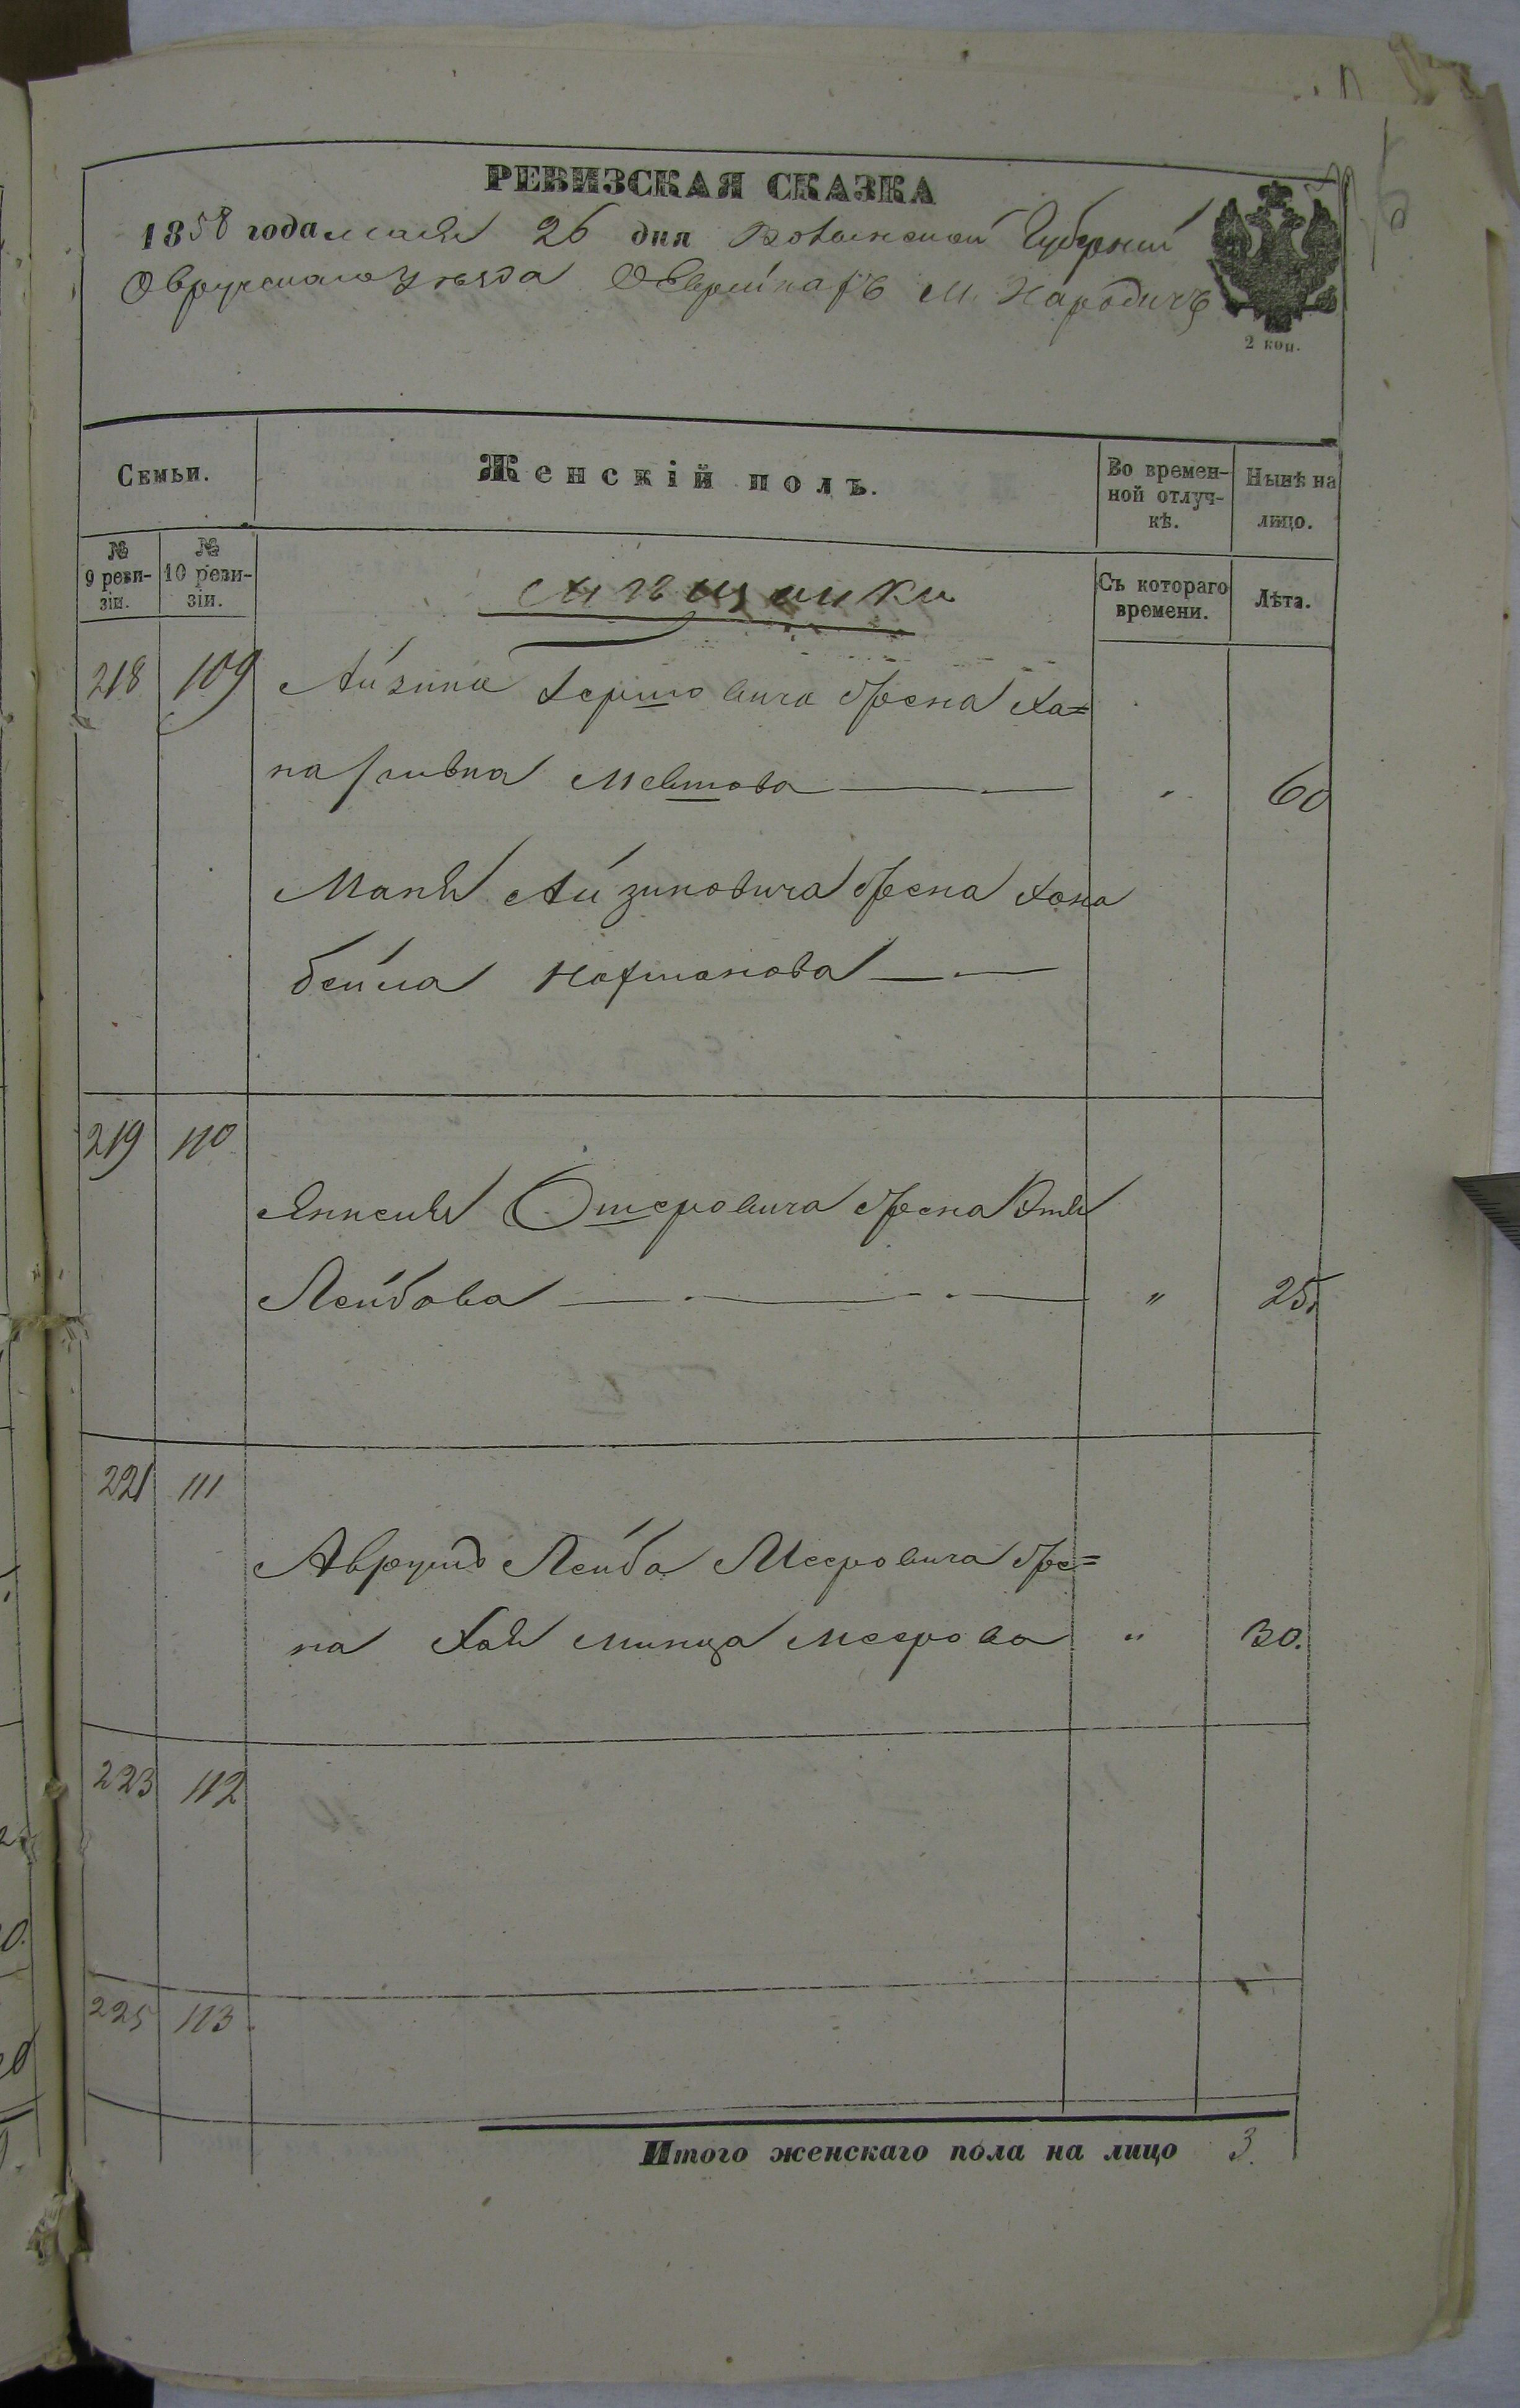 РЕВИЗСКАЯ СКАЗКА
1858 года маія 26 дня Волынской Губерніи
Овручскаго Уѣзда О Евреяхъ М. Народичъ
2 коп.
Семьи.
Женскій полъ.
Во времен-
ной отлуч-
кѣ.
Нынѣ на
лицо.
№
9 реви-
зіи.
№
10 реви-
зіи.
Мѣщанки
Съ котораго
времени.
Лѣта.
218 109 Айзика Гершовича жена Ха=
на Мевшова " 60
Маня Айзиковича жена Хона
бейла Нахманова
219 110
Ошеровича жена
Лейбова " 25.
221 111
Аврумъ Лейба Мееровича же=
на Хая минца меерова " 30.
223 112
225 113.
Итого женскаго пола на лицо 3.